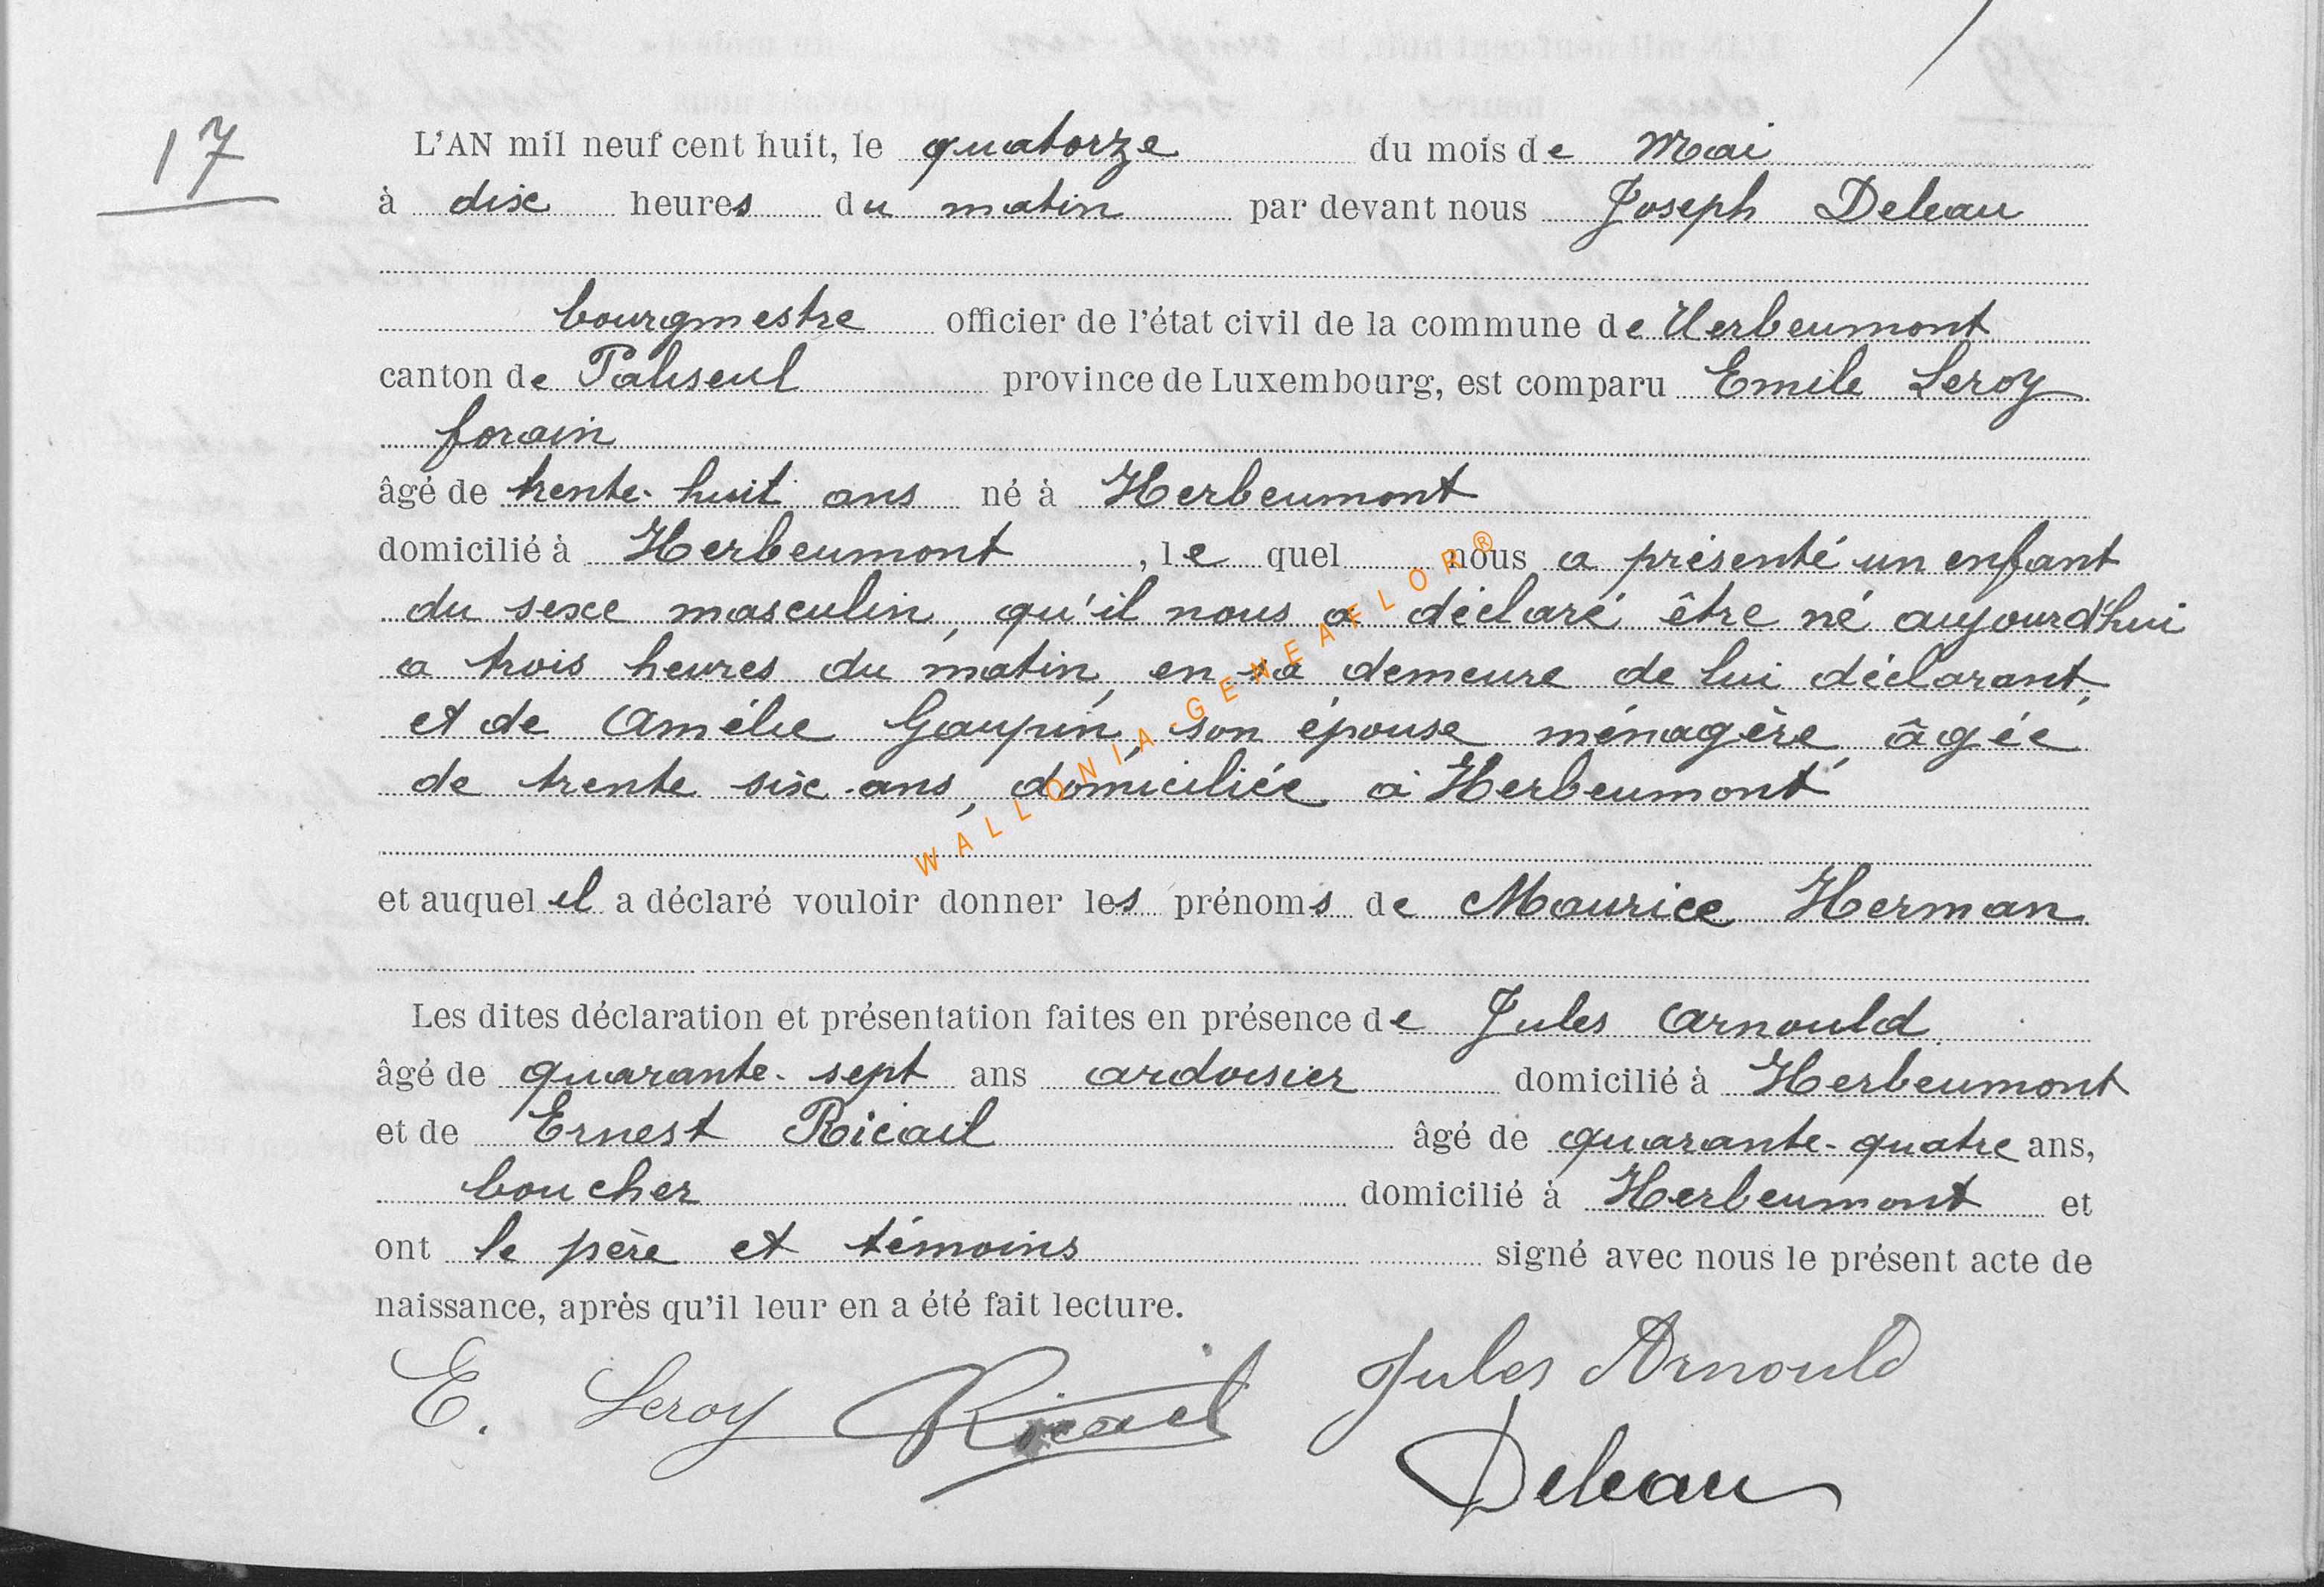 17
L'AN mil neuf cent huit, le quatorze du mois de Mai
à dix heures du matin par devant nous Joseph Deleau
bourgmestre officier de l'état civil de la commune de Herbeumont
canton de Paliseul province de Luxembourg, est comparu Emile Leroy
forain
âgé de trente-huit ans né à Herbeumont
domicilié à Herbeumont, le quel nous a présenté un enfant
du sexe masculin, qu'il nous a déclaré être né aujourd'hui
a trois heures du matin, en sa demeure de lui déclarant,
et de Amélie Gaupin, son épouse ménagère, âgée
de trente six ans, domiciliée à Herbeumont
et auquel il a déclaré vouloir donner les prénoms de Maurice Herman
Les dites déclaration et présentation faites en présence de Jules Arnould
âgé de quarante-sept ans ardoisier domicilié à Herbeumont
et de Ernest Ricail âgé de quarante-quatre ans,
boucher domicilié à Herbeumont et
ont le père et témoins signé avec nous le présent acte de
naissance, après qu'il leur en a été fait lecture.
E. Leroy Ricail Jules Arnould
Deleau
WALLONIA-GENEAFLOR®